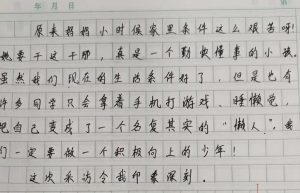 年 月 日
原来妈妈小时候家里条件这么艰苦呀!
她要干这干那,真是一个勤快懂事的小孩。
虽然我们现在的生活条件好了,但是也有
许多同学只会拿着手机打游戏、睡懒觉,
把自己变成了一个名复其实的“懒人”。我
们一定要做一个积极向上的少年!
这次采访令我印象深刻。